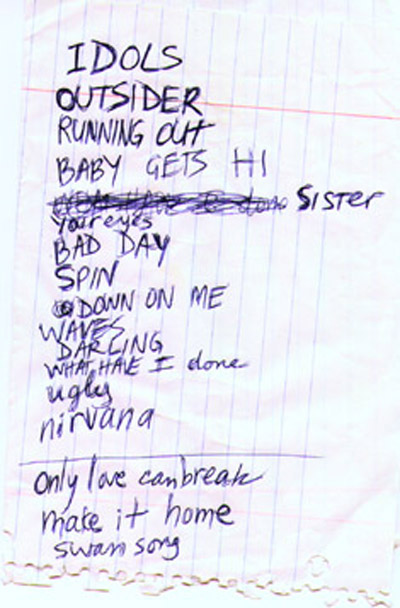 IDOLS
OUTSIDER
RUNNING OUT
BABY GETS HI
SISTER
your eyes
BAD DAY
SPIN
DOWN ON ME
WAVES
DARLING
WHAT HAVE I done
ugly
nirvana
only love can break
make it home
swan song